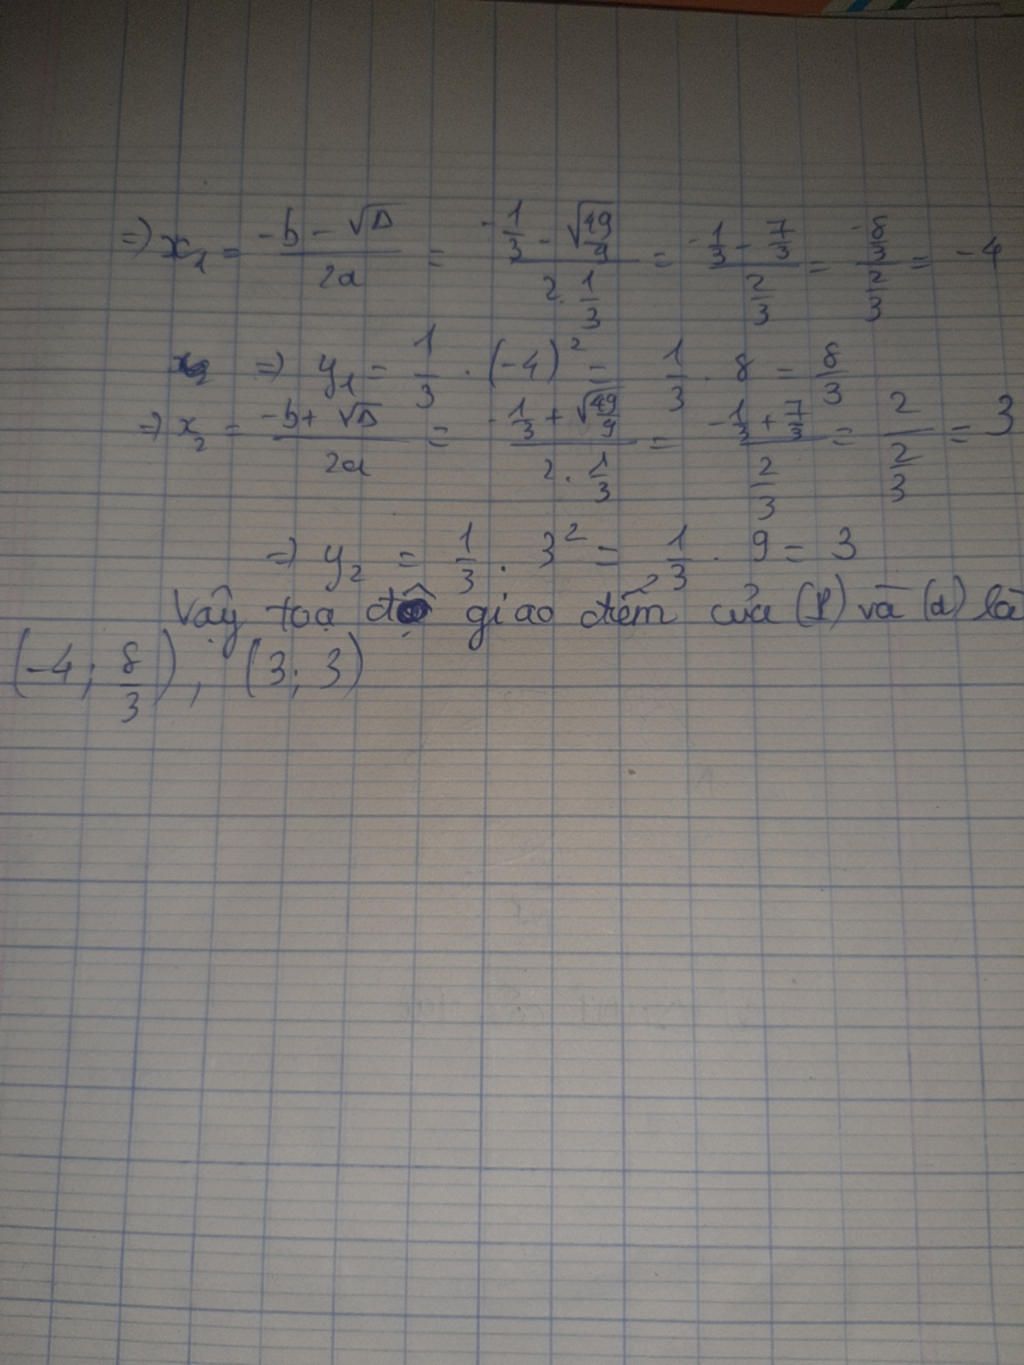 => x₁ = (-b - √Δ)/(2a) = (-1/3 - √(49/9))/(2 · 1/3) = (-1/3 - 7/3)/(2/3) = (-8/3)/(2/3) = -4
=> y₁ = 1/3 · (-4)² = 1/3 · 8 = 8/3
=> x₂ = (-b + √Δ)/(2a) = (-1/3 + √(49/9))/(2 · 1/3) = (-1/3 + 7/3)/(2/3) = 2/(2/3) = 3
=> y₂ = 1/3 · 3² = 1/3 · 9 = 3
Vậy toạ độ giao điểm của (P) và (d) là
(-4; 8/3), (3; 3)